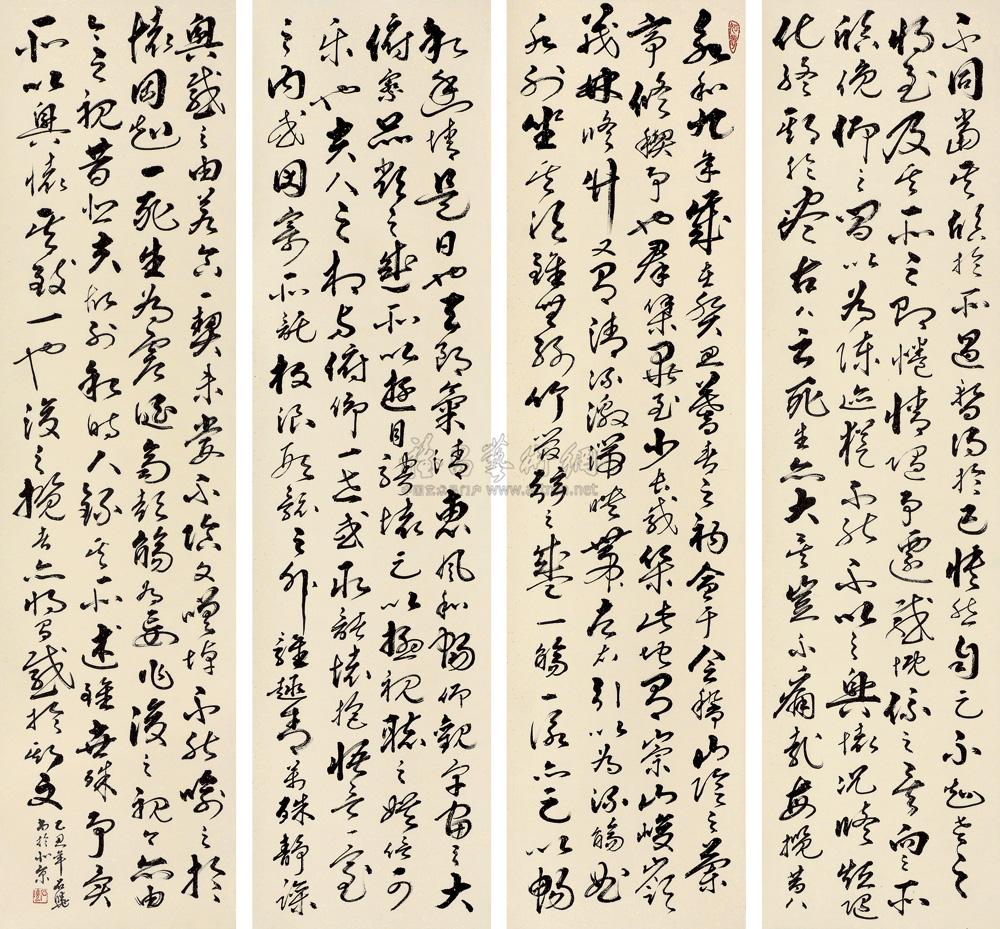 永和九年歲在癸丑暮春之初會于會稽山陰之蘭
亭修禊事也群賢畢至少長咸集此地有崇山峻嶺
茂林修竹又有清流激湍映帶左右引以為流觴曲
水列坐其次雖無絲竹管弦之盛一觴一詠亦足以暢
敘幽情是日也天朗氣清惠風和暢仰觀宇宙之大
俯察品類之盛所以遊目騁懷足以極視聽之娛信可
樂也夫人之相與俯仰一世或取諸懷抱悟言一室
之內或因寄所託放浪形骸之外雖趣舍萬殊靜躁
不同當其欣於所遇暫得於己快然自足不知老之
將至及其所之既惓情隨事遷感慨係之矣向之所
欣俛仰之間以為陳迹猶不能不以之興懷況修短隨
化終期於盡古人云死生亦大矣豈不痛哉每攬昔人
興感之由若合一契未嘗不臨文嗟悼不能喻之於
懷固知一死生為虛誕齊彭殤為妄作後之視今亦由
今之視昔悲夫故列敘時人錄其所述雖世殊事異
所以興懷其致一也後之攬者亦將有感於斯文
乙丑年
書於北京